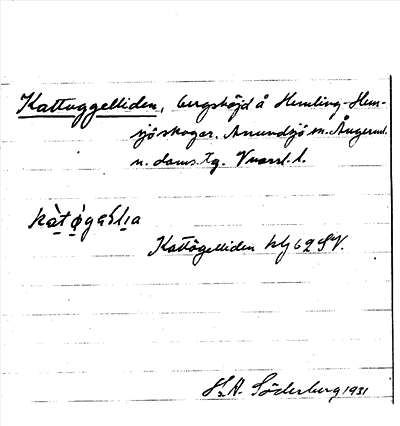 Kattuggelliden, bergshöjd å Hemling-Hem-
sjöskogar. Anundsjö sn. Ångerml.
n. doms. tg. Vnorrl. l.
Kattögelliden blj 69 SV.
S. H. Söderberg 1931